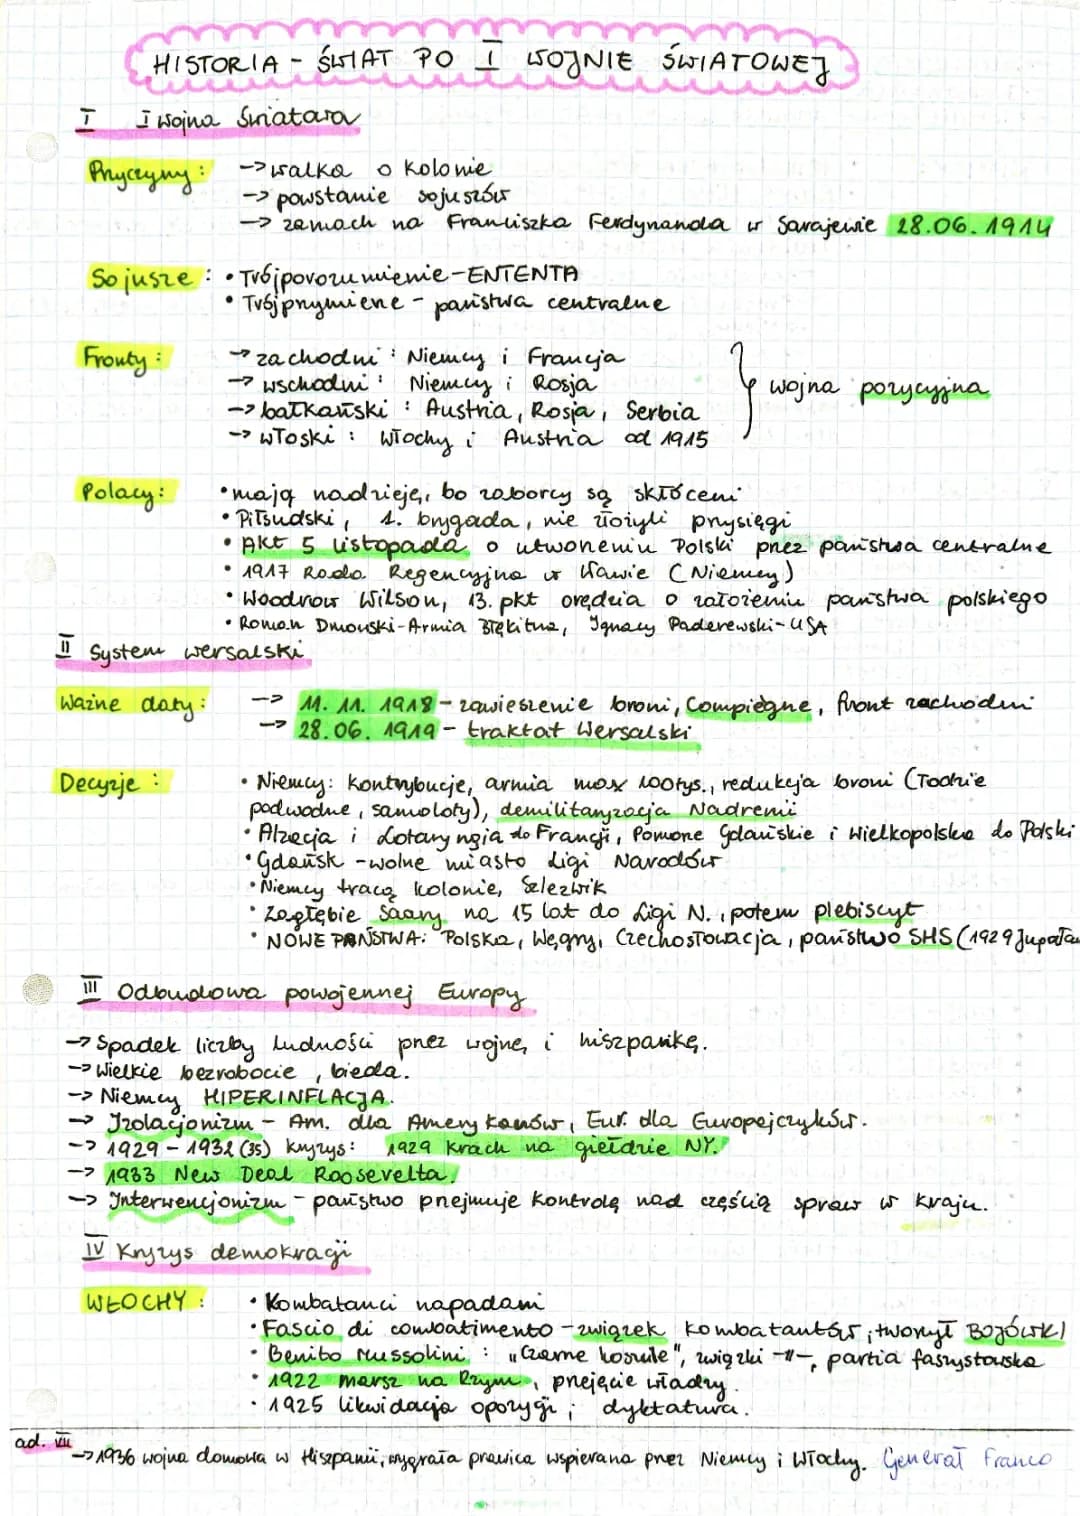 HISTORIA - ŚWIAT PO I WOJNIE ŚWIATOWEJ
I I wojna światowa
Przyczyny: -> walka o kolonie
-> powstanie sojuszów
-> zamach na Franciszka Ferdynanda w Sarajewie 28.06.1914
Sojusze: • Trójporozumienie - ENTENTA
• Trójprzymierze - państwa centralne
Fronty: -> zachodni: Niemcy i Francja
-> wschodni: Niemcy i Rosja
-> bałkański: Austria, Rosja, Serbia
wojna pozycyjna
-> włoski: Włochy i Austria od 1915
Polacy: • mają nadzieję, bo zaborcy są skłóceni
• Piłsudski, 1. brygada, nie złożyli przysięgi
• Akt 5 listopada o utworzeniu Polski przez państwa centralne
• 1917 Rada Regencyjna w Wawie (Niemcy)
• Woodrow Wilson, 13. pkt orędzia o założeniu państwa polskiego
• Roman Dmowski - Armia Błękitna, Ignacy Paderewski - USA
II System wersalski
Ważne daty: -> 11.11.1918 - zawieszenie broni, Compiègne, front zachodni
-> 28.06.1919 - traktat Wersalski
Decyzje: • Niemcy: kontrybucje, armia max 100tys., redukcja broni (łodzie
podwodne, samoloty), demilitaryzacja Nadrenii
• Alzacja i Lotaryngia do Francji, Pomorze Gdańskie i Wielkopolska do Polski
• Gdańsk - wolne miasto Ligi Narodów
• Niemcy tracą kolonie, Szlezwik
• Zagłębie Saary na 15 lat do Ligi N., potem plebiscyt
• NOWE PAŃSTWA: Polska, Węgry, Czechosłowacja, państwo SHS (1929 Jugosła
III Odbudowa powojennej Europy
-> Spadek liczby ludności przez wojnę i hiszpankę.
-> Wielkie bezrobocie, bieda.
-> Niemcy HIPERINFLACJA.
-> Izolacjonizm - Am. dla Amerykanów, Eur. dla Europejczyków.
-> 1929 - 1932 (35) kryzys: 1929 krach na giełdzie NY.
-> 1933 New Deal Roosevelta.
-> Interwencjonizm - państwo przejmuje kontrolę nad częścią spraw w kraju.
IV Kryzys demokracji
WŁOCHY: • Kombatanci napadani
• Fascio di combatimento - związek kombatantów, tworzył BOJÓWKI
• Benito Mussolini: "Czarne koszule", związki -||-, partia faszystowska
• 1922 marsz na Rzym, przejęcie władzy.
• 1925 likwidacja opozycji; dyktatura.
ad. VII
-> 1936 wojna domowa w Hiszpanii, wygrała prawica wspierana przez Niemcy i Włochy. Generał Franco